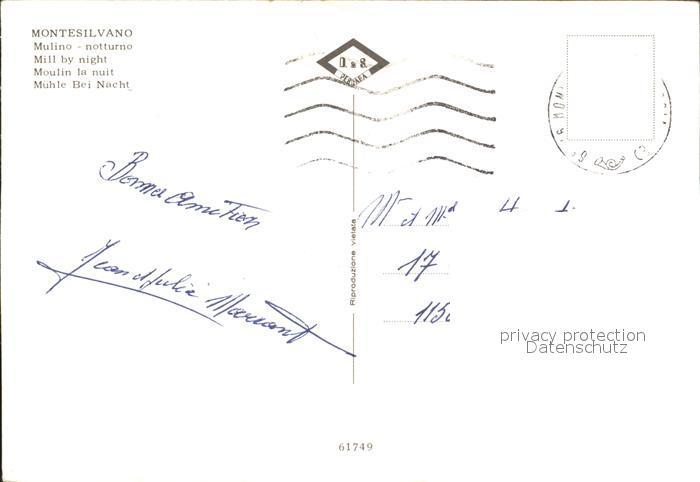 MONTESILVANO
Mulino - notturno
Mill by night
Moulin la nuit
Mühle Bei Nacht
D. & S.
PESCARA
Bonne
Jean et Julia
Mr et Md
17
115
Riproduzione vietata
privacy protection
Datenschutz
61749